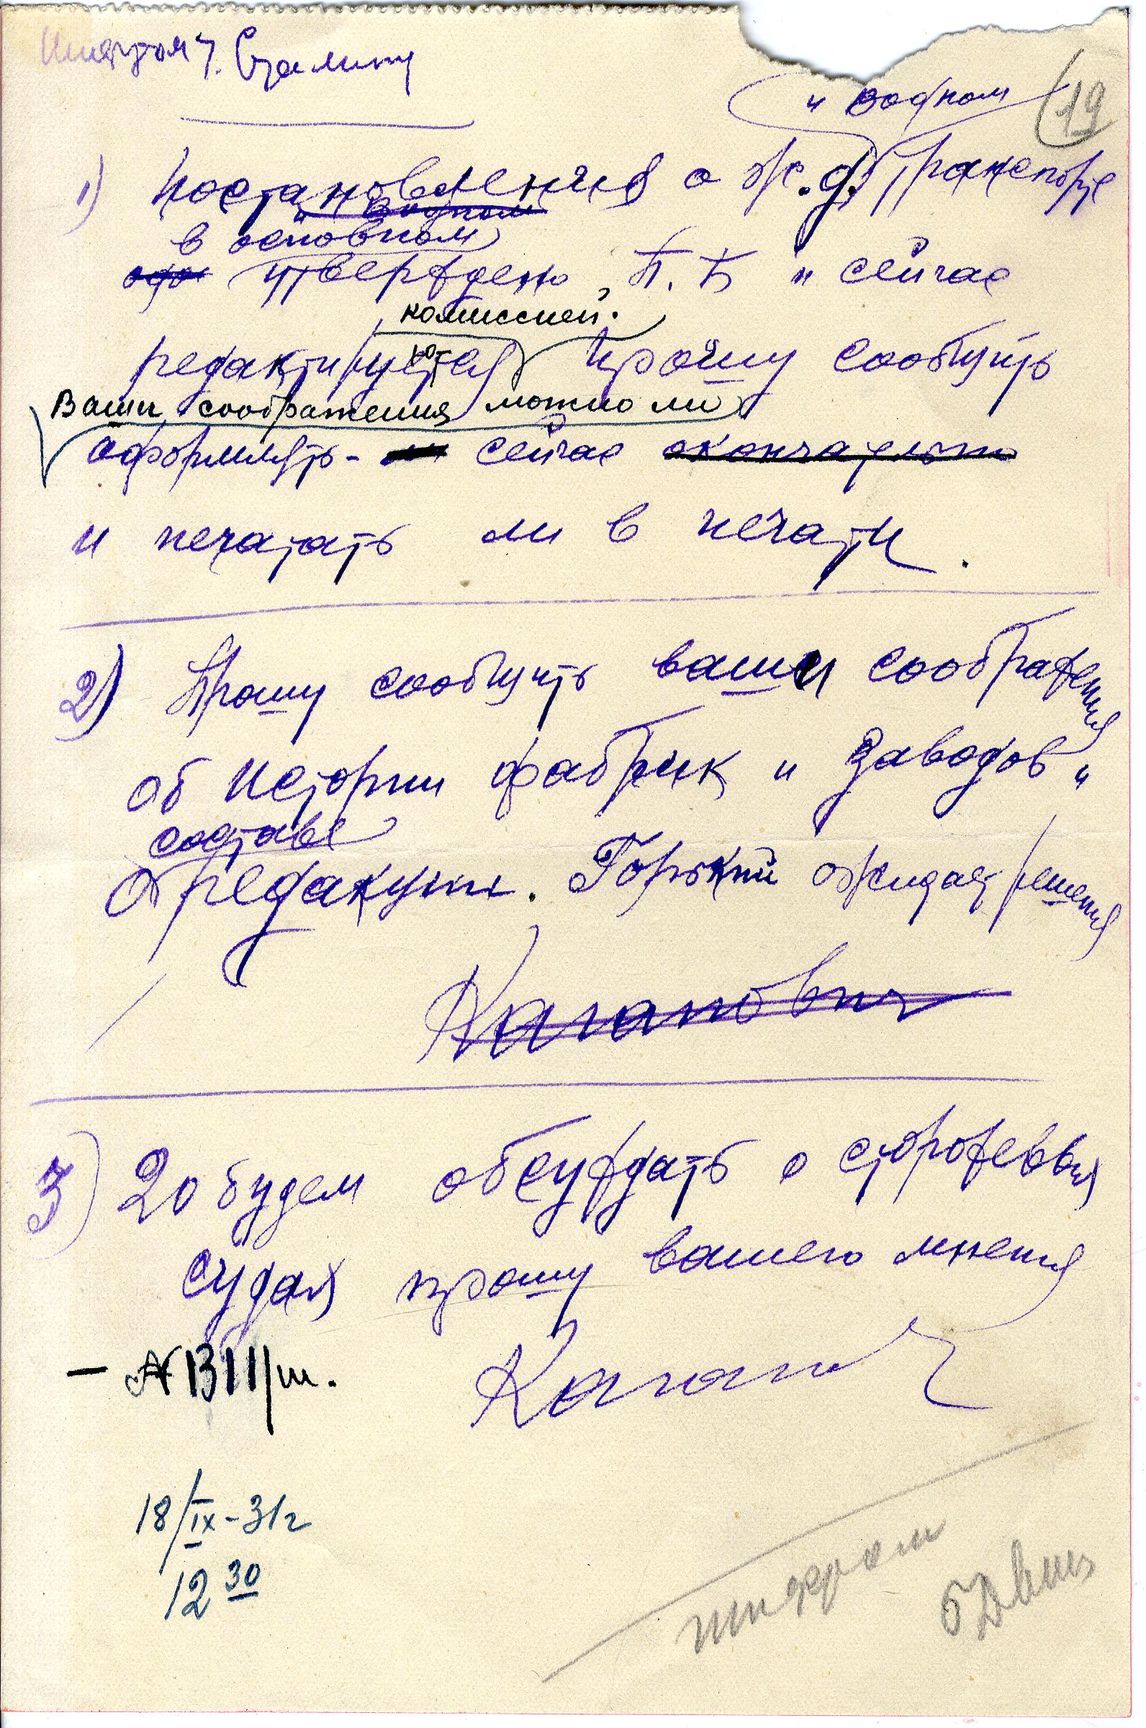 Шифром т. Сталину
19
и водном
1) Постановления о ж.д. транспорте
водном
в основном
утверждено П.Б и сейчас
комиссией.
редактируется Прошу сообщить
Ваши соображения можно ли
оформлять - сейчас окончательно
и печатать ли в печати.
2) Прошу сообщить ваши соображения
об истории фабрик и заводов и
составе
редакции. Горький ожидает решения
Каганович
3) 20 будем обсуждать о сторожевых
судах прошу вашего мнения
Каганович
18/IX-31г
12 30
шифром